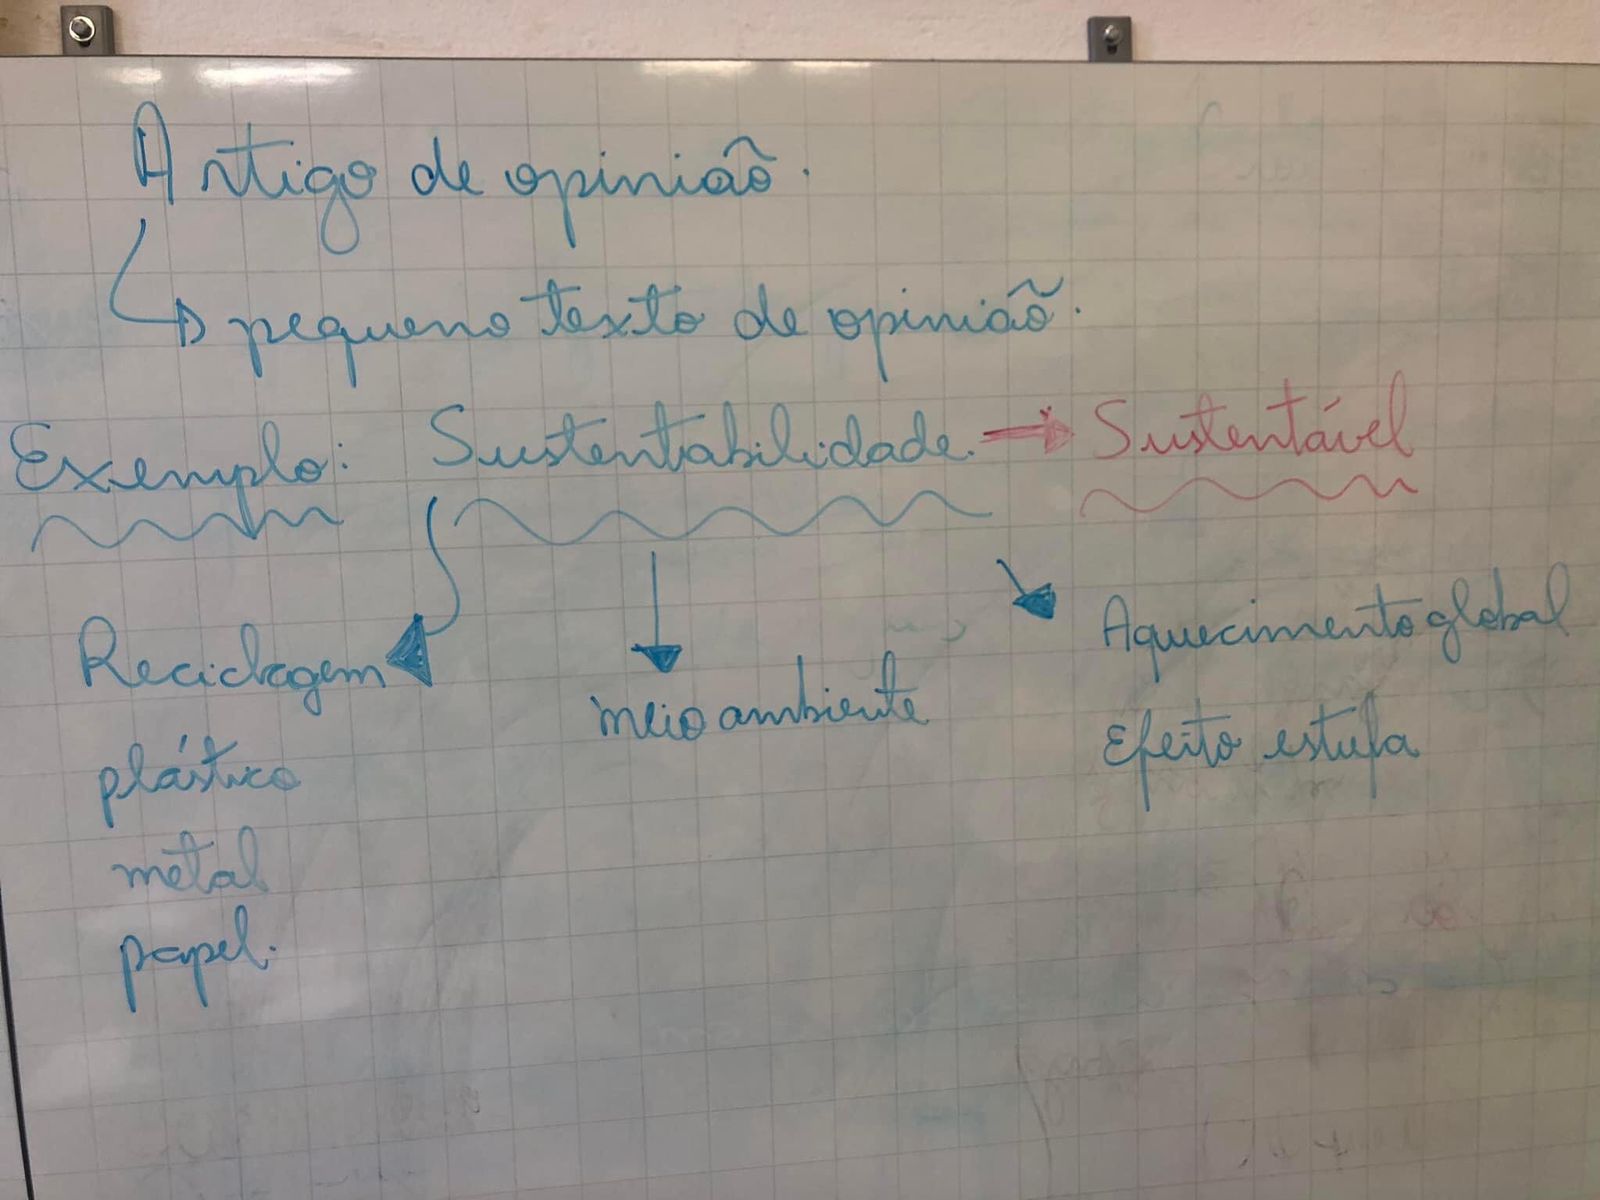 Artigo de opinião.
pequeno texto de opinião.
Exemplo: Sustentabilidade. → Sustentável
Reciclagem
meio ambiente
Aquecimento global
Efeito estufa
plástico
metal
papel.